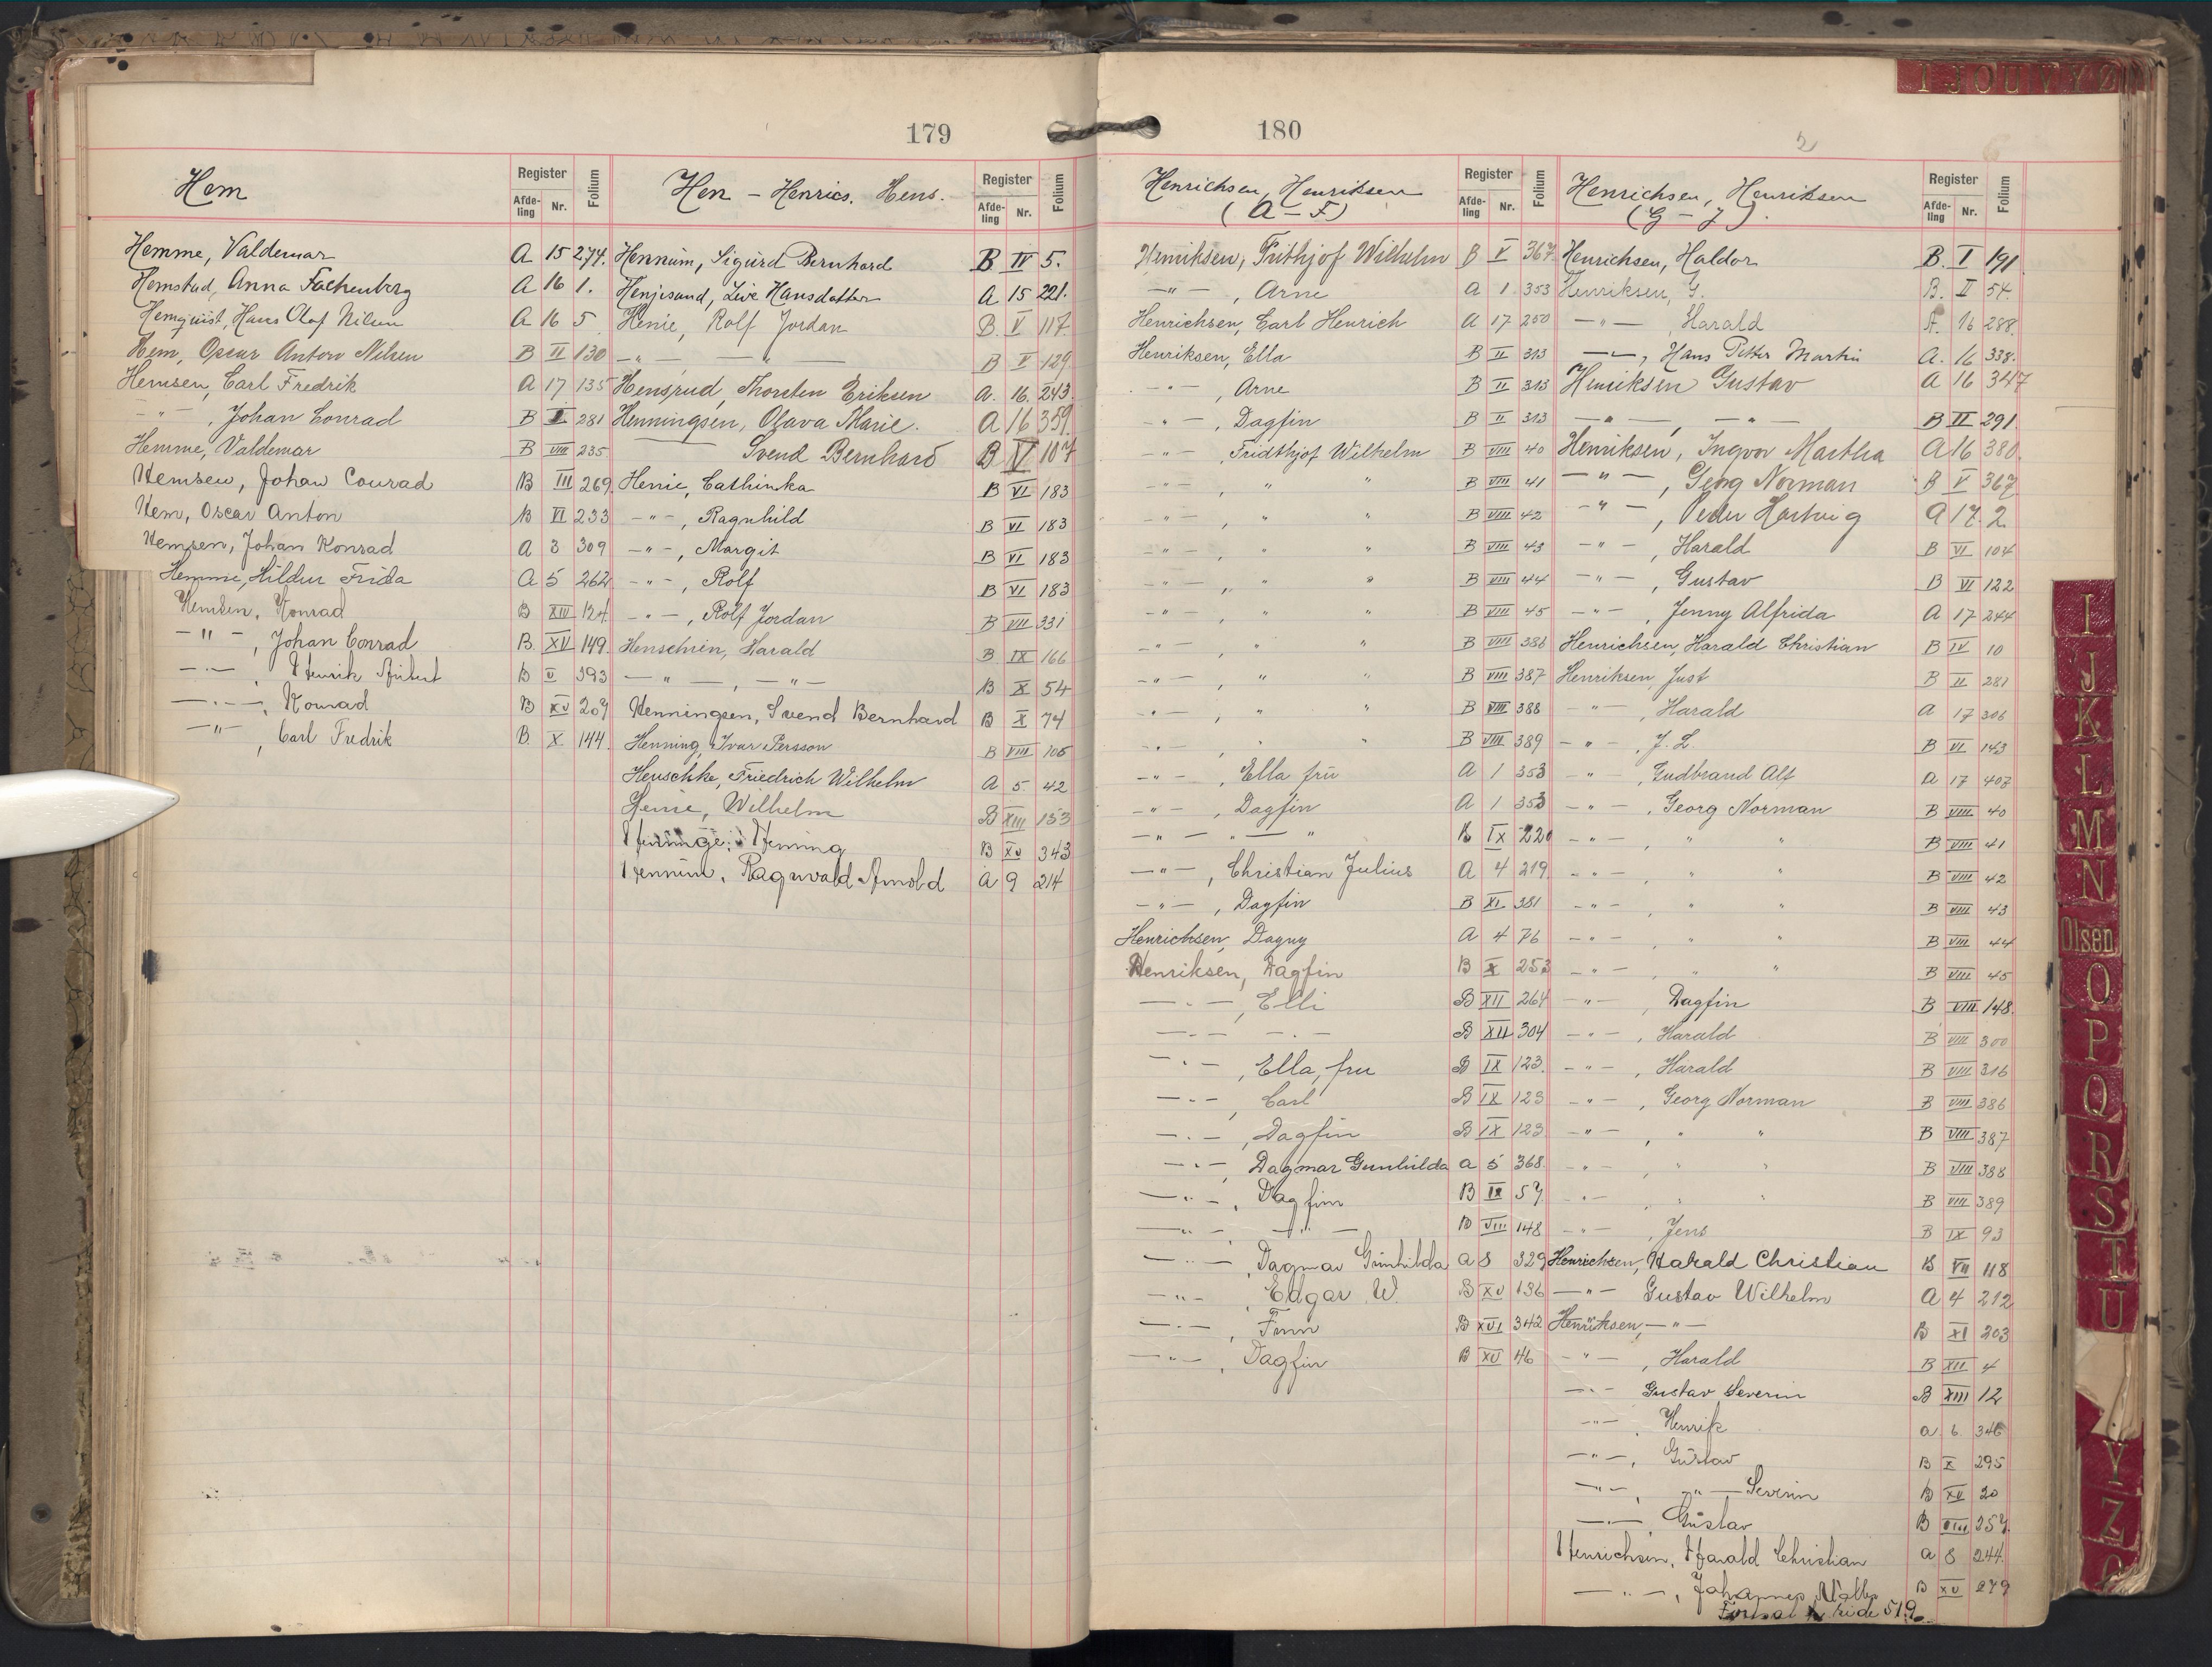 179
Hem
Register
Afde-ling Nr. Folium
Hemme, Valdemar A 15 274.
Hemstad, Anna Fachenberg A 16 1.
Hemquist, Hans Olaf Nilsen A 16 5
Hem, Oscar Anton Nilsen B II 130
Hemsen, Carl Fredrik A 17 135
- " - , Johan Conrad B II 281
Hemme, Valdemar B VIII 235
Hemsen, Johan Conrad B III 269
Hem, Oscar Anton B VI 233
Hemsen, Johan Konrad A 3 309
Hemme, Hildur Frida A 5 262
Hemsen, Konrad B XIII 124
- " - , Johan Conrad B. XV 149.
- " - , Henrik B V 393
- " - , Konrad B XV 209
- " - , Carl Fredrik B. X. 144.
Hen - Henrics. Hens.
Register
Afde-ling Nr. Folium
Hennum, Sigurd Bernhard B IV 5.
Henjesand, Live Hansdatter A 15 221.
Henie, Rolf Jordan B. V 117
- " - - " - B V 129
Hensrud, Thorsten Eriksen A. 16. 243
Henningsen, Olava Marie. A 16 359.
Svend Bernhard B IV 107
Henie, Cathinka B VI 183
- " - , Ragnhild B VI 183
- " - , Margit B VI 183
- " - , Rolf B VI 183
- " - , Rolf Jordan B VII 331
Henschien, Harald B. IX 166
- " - , - " - B X 54
Henningsen, Svend Bernhard B X 74
Henning, Ivar Persson B VIII 106
Henschke, Friedrich Wilhelm A 5 42
Henie, Wilhelm B XIII 153
Henninge, Henning B XV 343
Hennum, Ragnvald Arnold A 9 214
180
Henrichsen, Henriksen
(A - F)
Register
Afde-ling Nr. Folium
Henriksen, Frithjof Wilhelm B V 367
- " - , Arne A 1 353
Henrichsen, Carl Henrich A 17 250
Henriksen, Ella B II 313
- " - , Arne B II 313
- " - , Dagfin B II 313
- " - , Fridthjof Wilhelm B VIII 40
- " - , " " B VIII 41
- " - , " " B VIII 42
- " - , " " B VIII 43
- " - , " " B VIII 44
- " - , " " B VIII 45
- " - , " " B VIII 386
- " - , " " B VIII 387
- " - , " " B VIII 388
- " - , " " B VIII 389
- " - , Ella fru A 1 353
- " - , Dagfin A 1 353
- " - " - " B IX 220
- " - , Christian Julius A 4 219
- " - , Dagfin B XI 381
Henrichsen, Dagny A 4 76
Henriksen, Dagfin B X 253
- " - , Elli B XII 264
- " - - " - B XII 304
- " - , Ella, fru B IX 123.
- " - , Carl B IX 123
- " - , Dagfin B IX 123
- " - , Dagmar Gunhilda A 5 368.
- " - , Dagfinn B IX 57
- " - , - " - B VIII 148
- " - , Dagmar Gunhilda A 8 329
- " - , Edgar W. B XV 136
- " - , Finn B XVI 342
- " - , Dagfin B XV 46
2
Henrichsen, Henriksen
(G - J).
Register
Afde-ling Nr. Folium
Henrichsen, Haldor B. I 191
Henriksen, G. B. II 54.
- " - , Harald A. 16 288.
- " - , Hans Petter Martin A. 16 338.
Henriksen Gustav A 16 347
- " - , - " - B II 291.
Henriksen, Ingvor Martha A 16 380.
- " - , Georg Norman B V 367
- " - , Peder Hartvig A 17. 2.
- " - , Harald B VI 104
- " - , Gustav B VI 122
- " - , Jenny Alfrida A 17 244
Henrichsen, Harald Christian B IV 10
Henriksen, Just B II 281
- " - , Harald A 17 306
- " - , J. L. B VI 143
- " - , Gudbrand Alf A 17 407
- " - , Georg Norman B VIII 40
- " - , " " B VIII 41
- " - , " " B VIII 42
- " - , " " B VIII 43
- " - , " " B VIII 44
- " - , " " B VIII 45
- " - , Dagfin B VIII 148.
- " - , Harald B VIII 300
- " - , Harald B VIII 316
- " - , Georg Norman B VIII 386
- " - , " " B VIII 387
- " - , " " B VIII 388
- " - , " " B VIII 389
- " - , Jens B IX 93
Henrichsen, Harald Christian B VII 118
- " - Gustav Wilhelm A 4 212
Henriksen, - " - B XI 203
- " - , Harald B XII 4
- " - Gustav Severin B XIII 12
- " - , Henrik A 6 346
- " - , Gustav B X 295
- " - , - " - Severin B XV 20
- " - , Gustav B VIII 257.
Henrichsen, Harald Christian A 8 244.
- " - , Johannes B XV 279
side 519.
I J O U V Y Ø
I
J
K
L
M
N
Olsen
O
P
Q
R
S
T
U
Y
Z